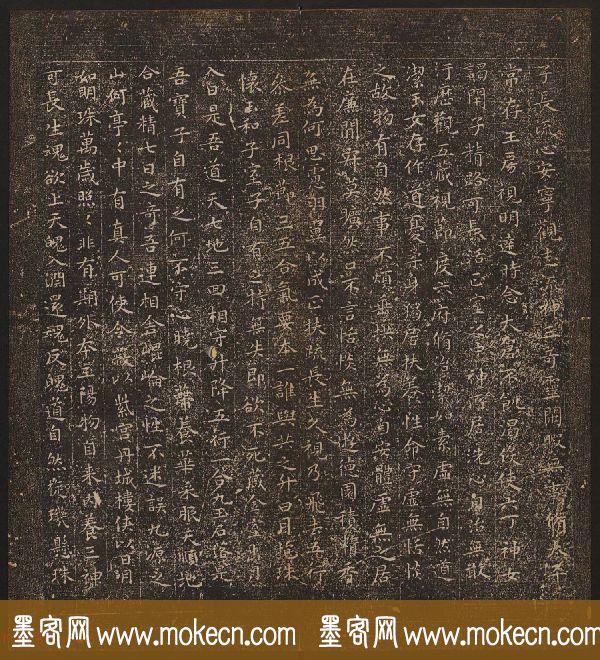 子長流心安寧觀志流神三奇靈閒暇無事脩太平
常存玉房視明達時念大倉不飢渴役使六丁神女
謁閉子精路可長活正室之中神所居洗心自治無敢
汙歷觀五藏視節度六府脩治潔如素虛無自然道
潔玉女存作道憂柔身獨居扶養性命守虛無恬惔
之故物有自然事不煩垂拱無為心自安體虛無之居
在廉間寂莫曠然口不言恬惔無為遊德園積精香
無為何思慮羽翼以成正扶疏長生久視乃飛去五行
參差同根節三五合氣要本一誰與共之升日月抱珠
懷玉和子室子自有之持無失即欲不死藏金室出月
入日是吾道天七地三回相守升降五行一合九玉石落落是
吾寶子自有之何不守心曉根蔕養華采服天順地
合藏精七日之奇吾連相合崐崘之性不迷誤九源之
山何亭〻中有真人可使令蔽以紫宮丹城樓俠以日月
如明珠萬歲照〻非有期外本三陽物自來內養三神
可長生魂欲上天魄入淵還魂反魄道自然旋璣懸珠
墨客网 www.mokecn.com 墨客网 www.mokecn.com